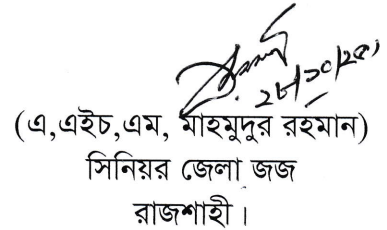 ২৮/১০/২৫
(এ,এইচ,এম, মাহমুদুর রহমান)
সিনিয়র জেলা জজ
রাজশাহী।